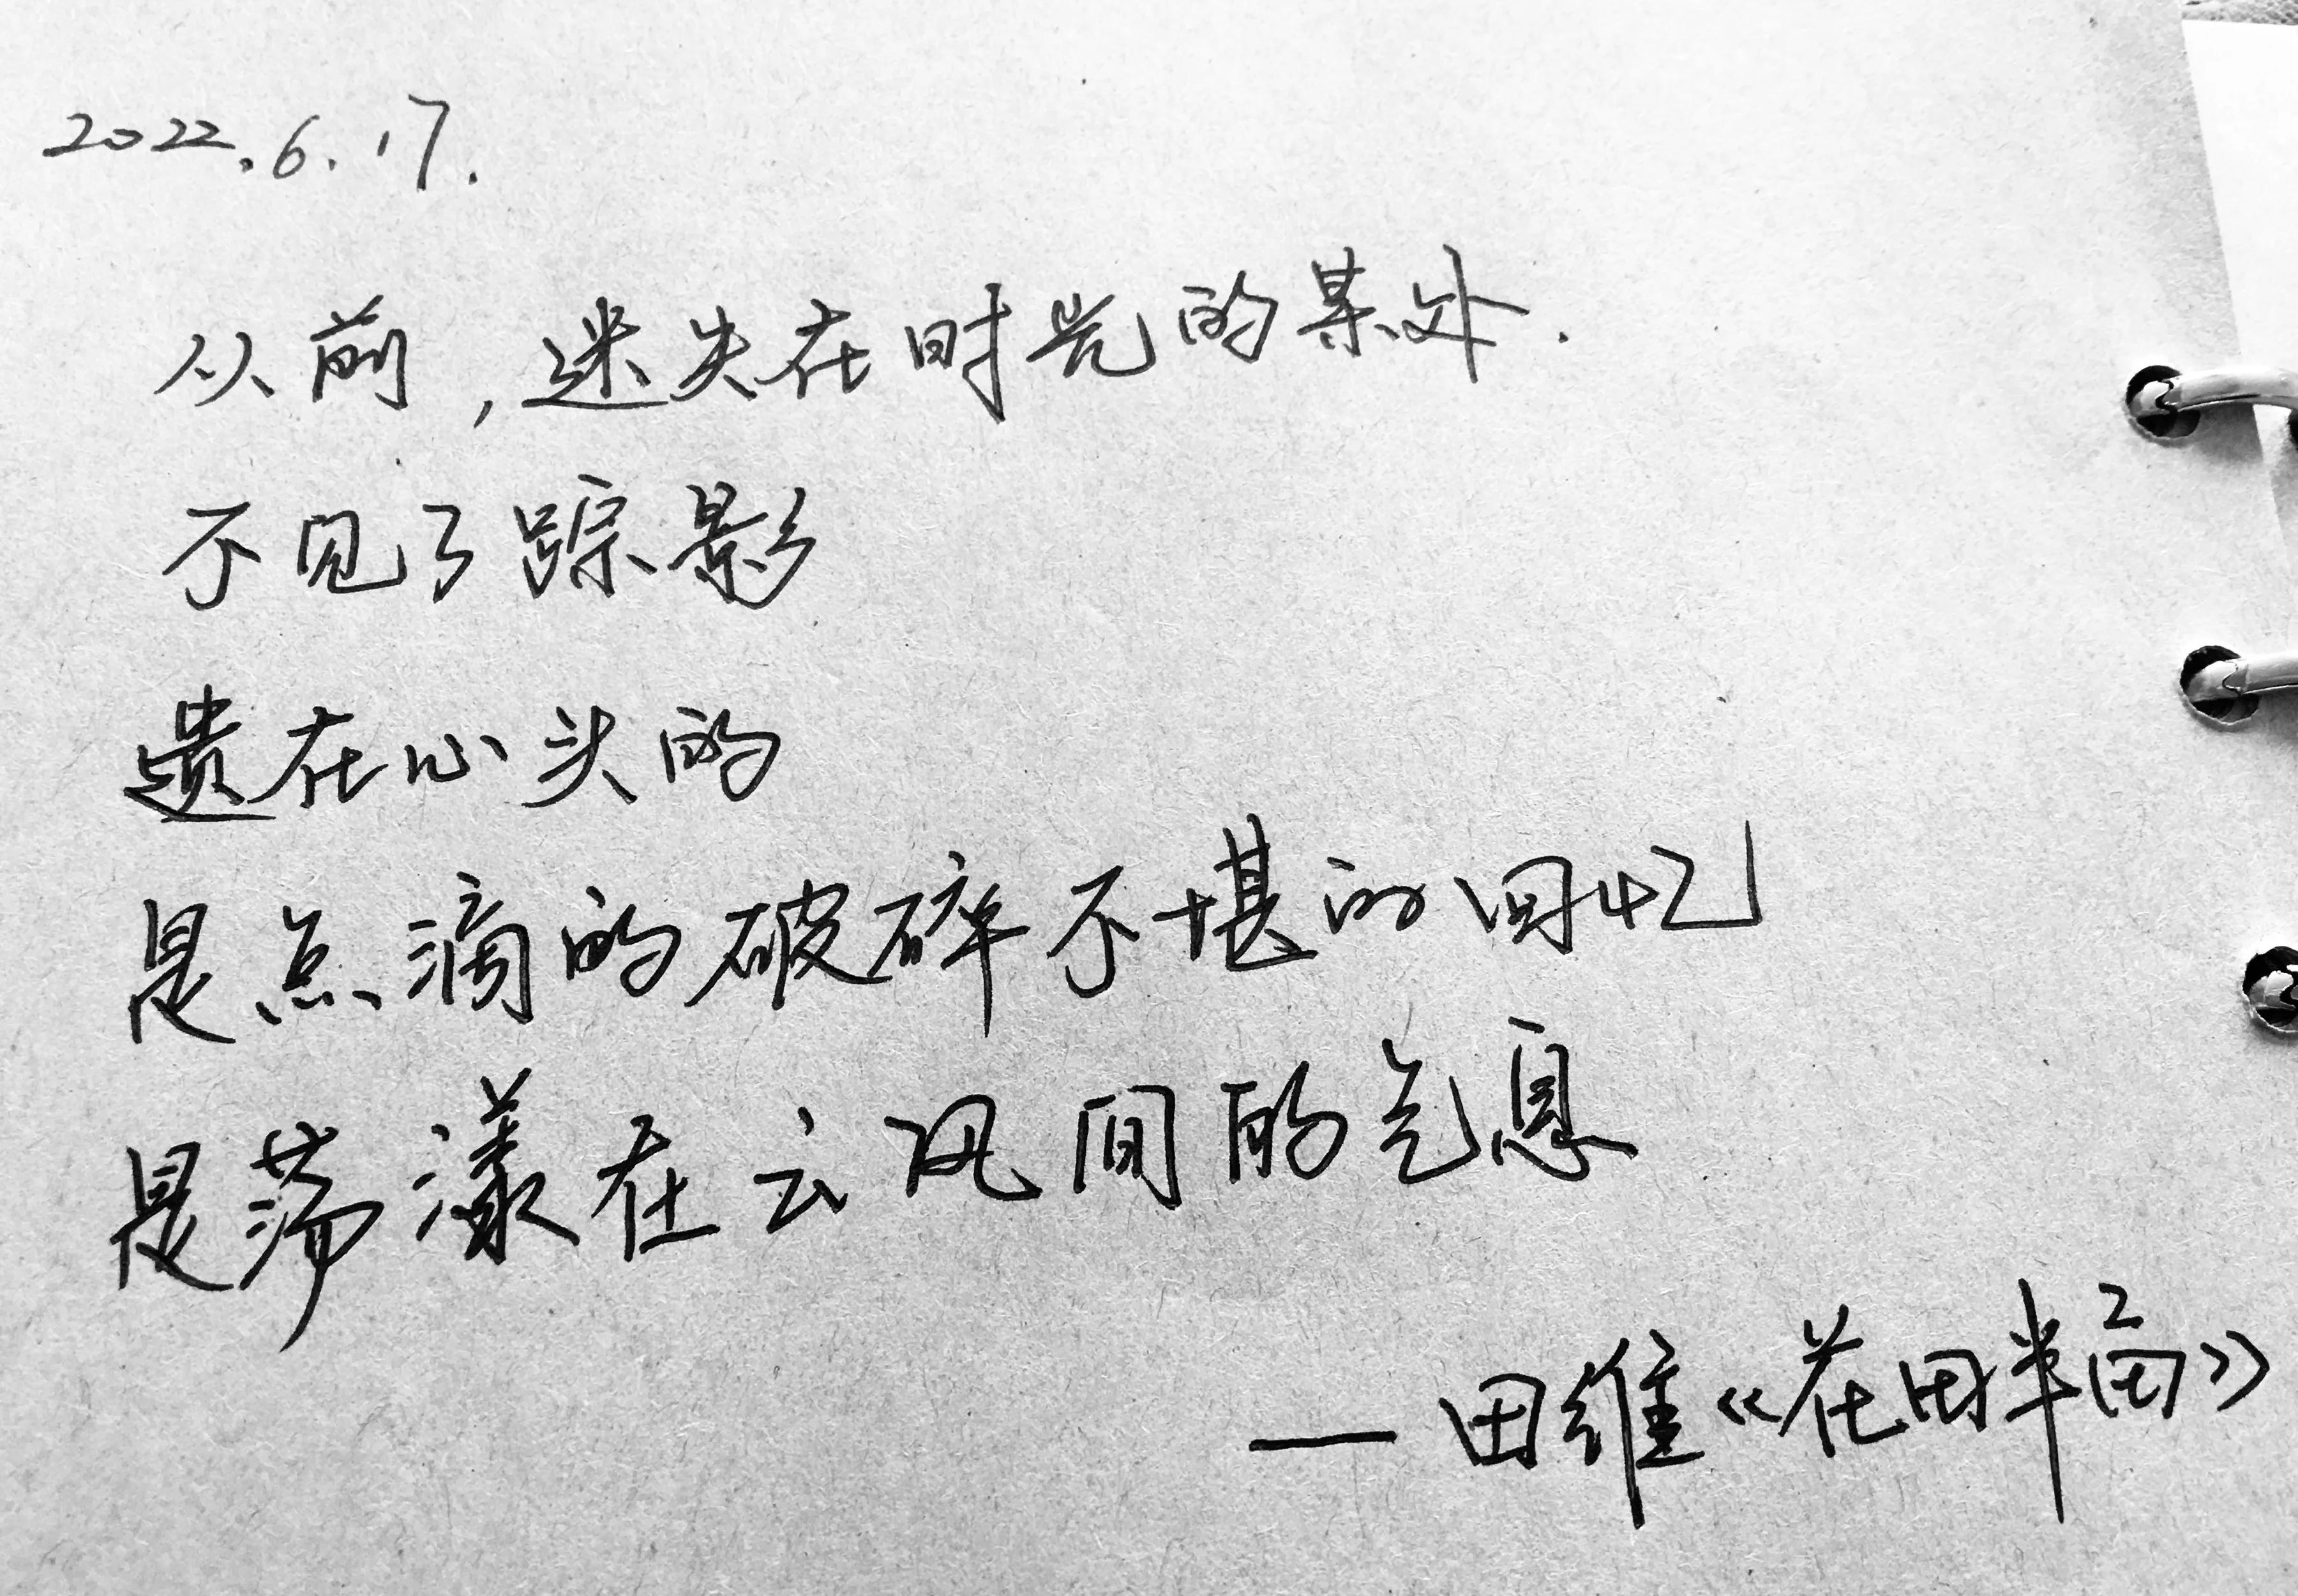 2022.6.17.
从前,迷失在时光的某处.
不见了踪影
遗在心头的
是点滴的破碎不堪的回忆
是荡漾在云风间的气息
—田维《花田半亩》